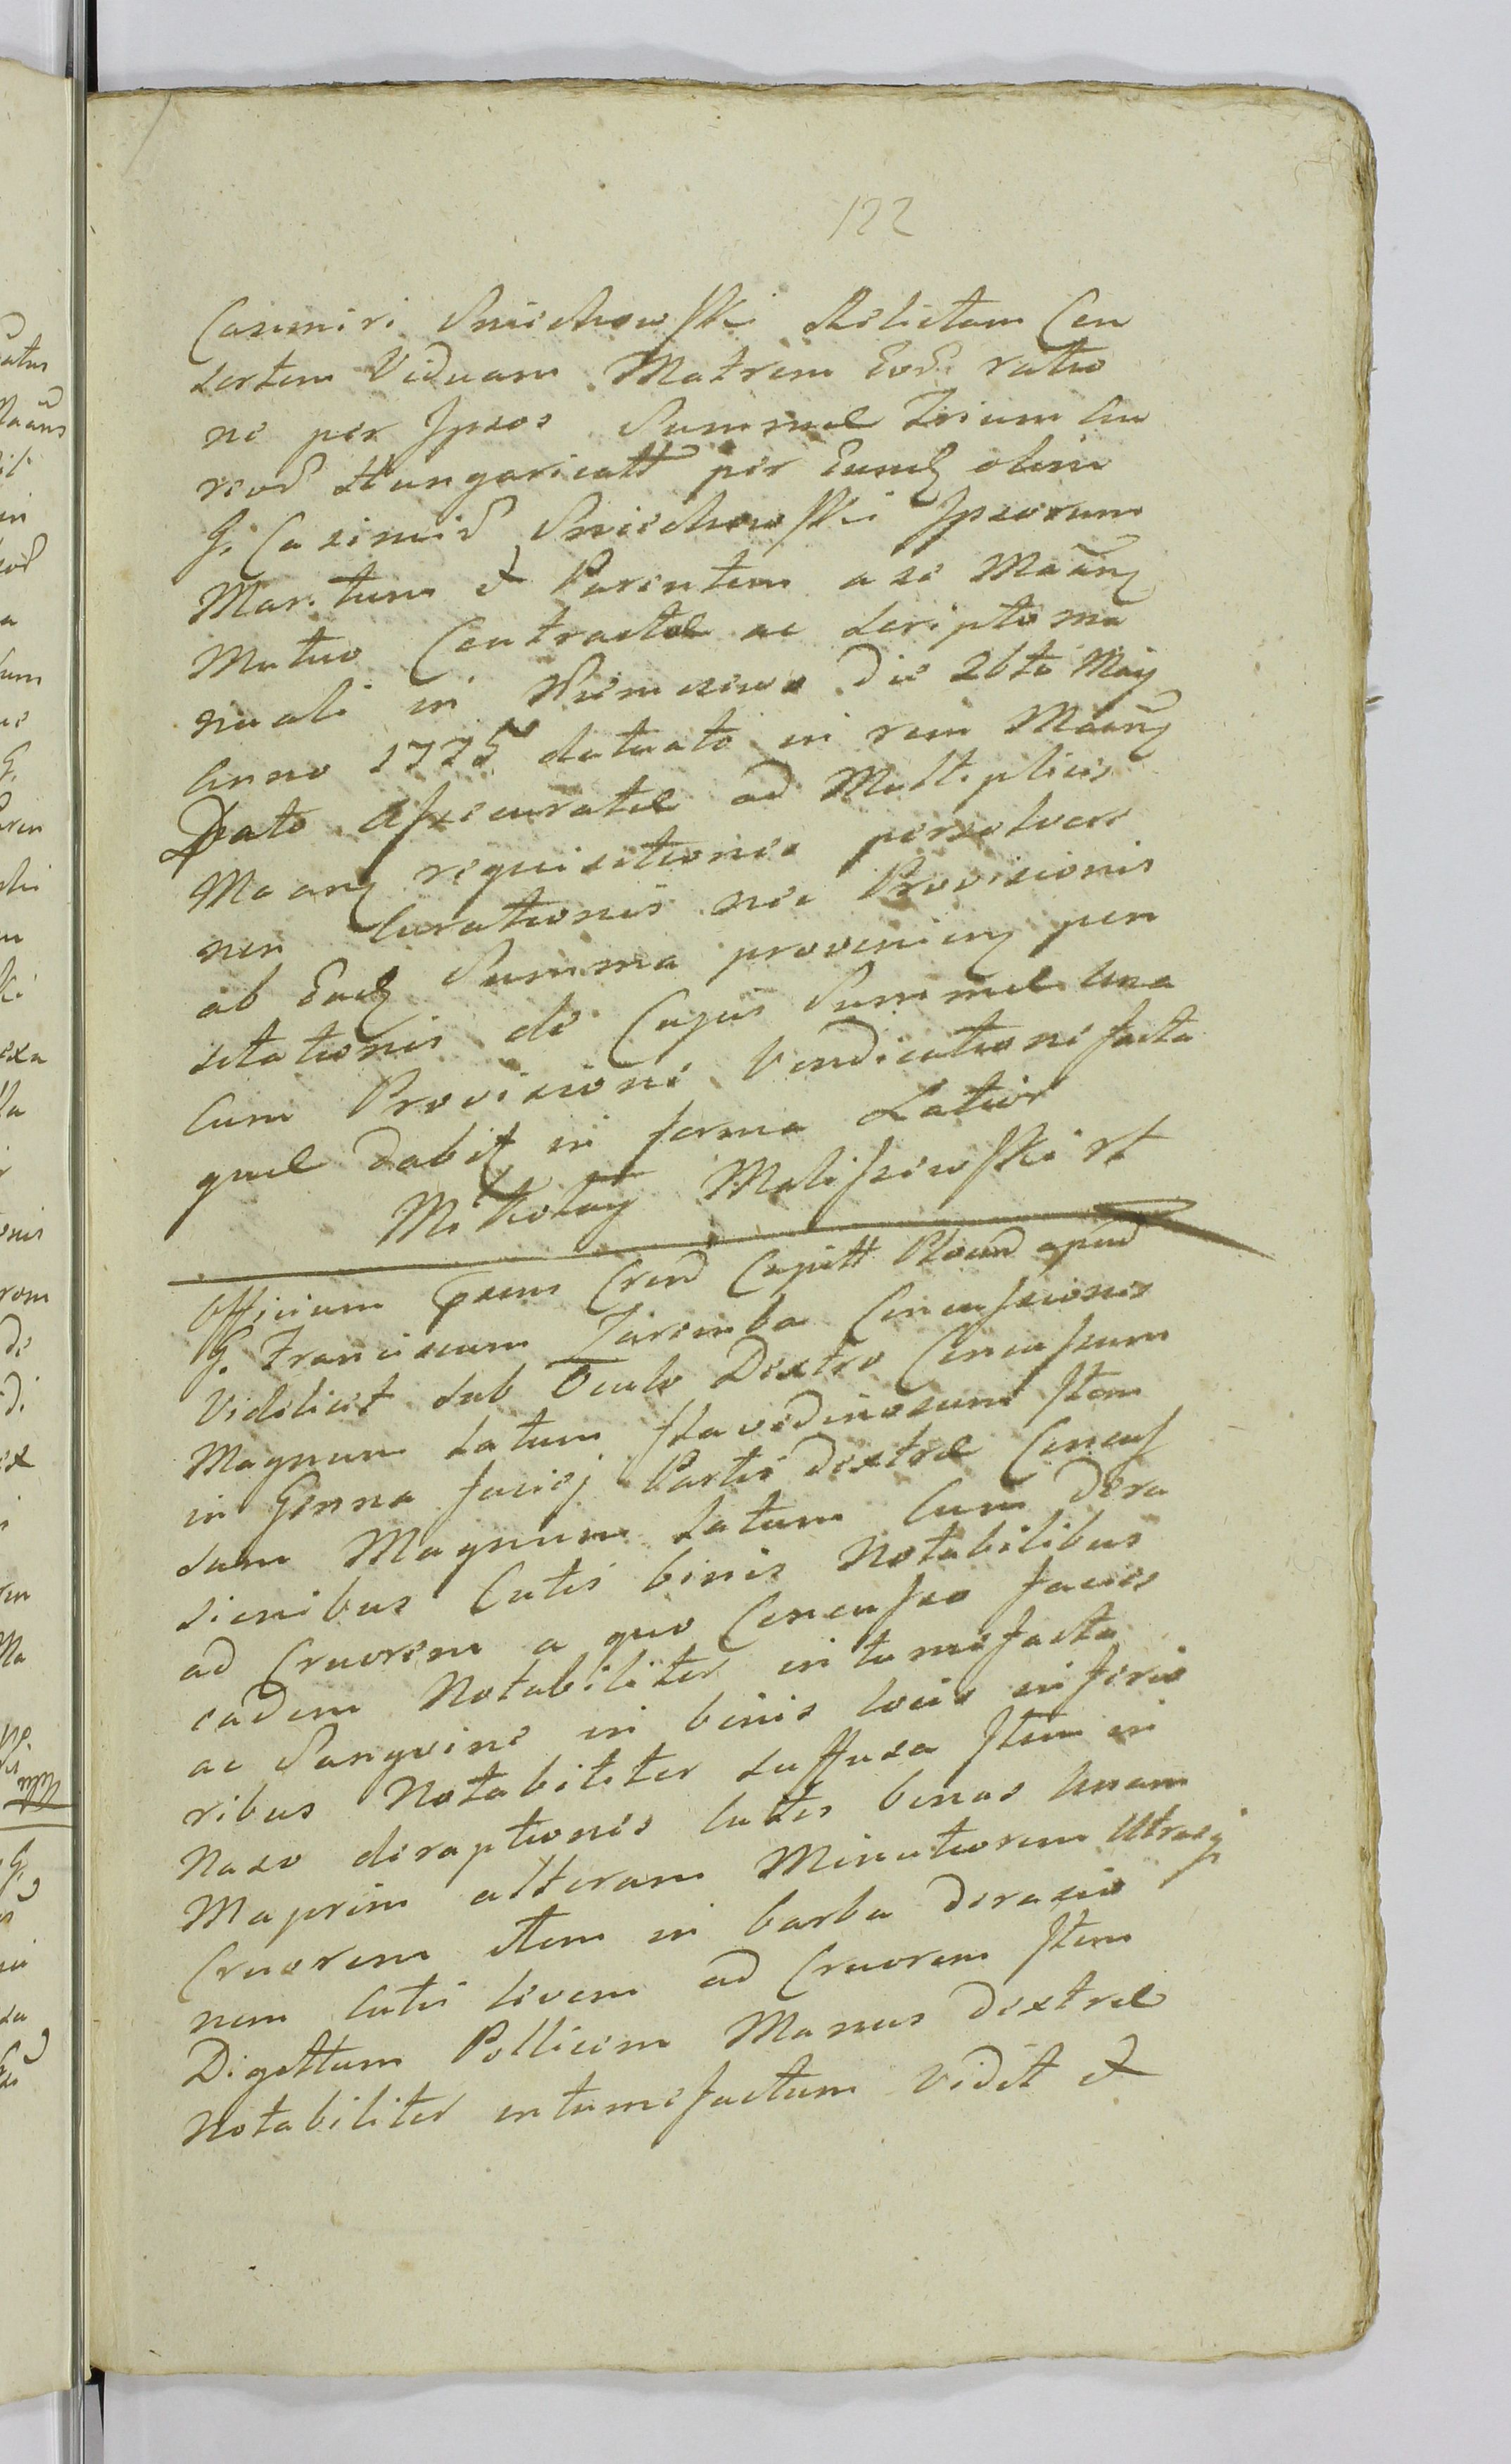 122
Casimiri Smiechowski Relictam Con
sortem Viduam Matrem Eod. ratio
ne per Ipsos Summæ Trium Au
reor Hungaricatt per Eundz olim
G. Casimir Smiechowski Ipsorum
Maritum & Parentem a se Maanz
Mutuo Contractæ ac scripto ma
nuali in die 26ta Maij
Anno 1725 datuato in rem Maanz
Dato Assecuratæ ad Multiplices
Maanz requisitiones persolvere
non Curationis nec Provisionis
ab Eadz Summa provenienz pen
sitationis de Cujus Summæ una
Cum Provisione Vendicatione facta
quæ dabitz in forma Latior
Mikołay Maliszewski rt
Officium Cpitt apud
G. Franciscum Zaremba Concussiones
Videlicet sub Oculo Dextro Concussum
Magnum Latum flavedinosum Item
in Genna faciej Partis dextræ Concus
sum Magnum Latum Cum Dera
sionibus Cutis binis Notabilibus
ad Cruorem a quo Concusso facies
eadem Notabiliter intumefacta
ac Sangvine in binis locis inferio
ribus Notabiliter suffusa Item in
Naso deraptiones Cutis binas Unam
Majorem alteram Minutiorem Utrasq
Cruorem Item in barba derasio
nem Cutis livem ad Cruorem Item
Digittum Pollicem Manus dextræ
Notabiliter intumefactum Vidit &